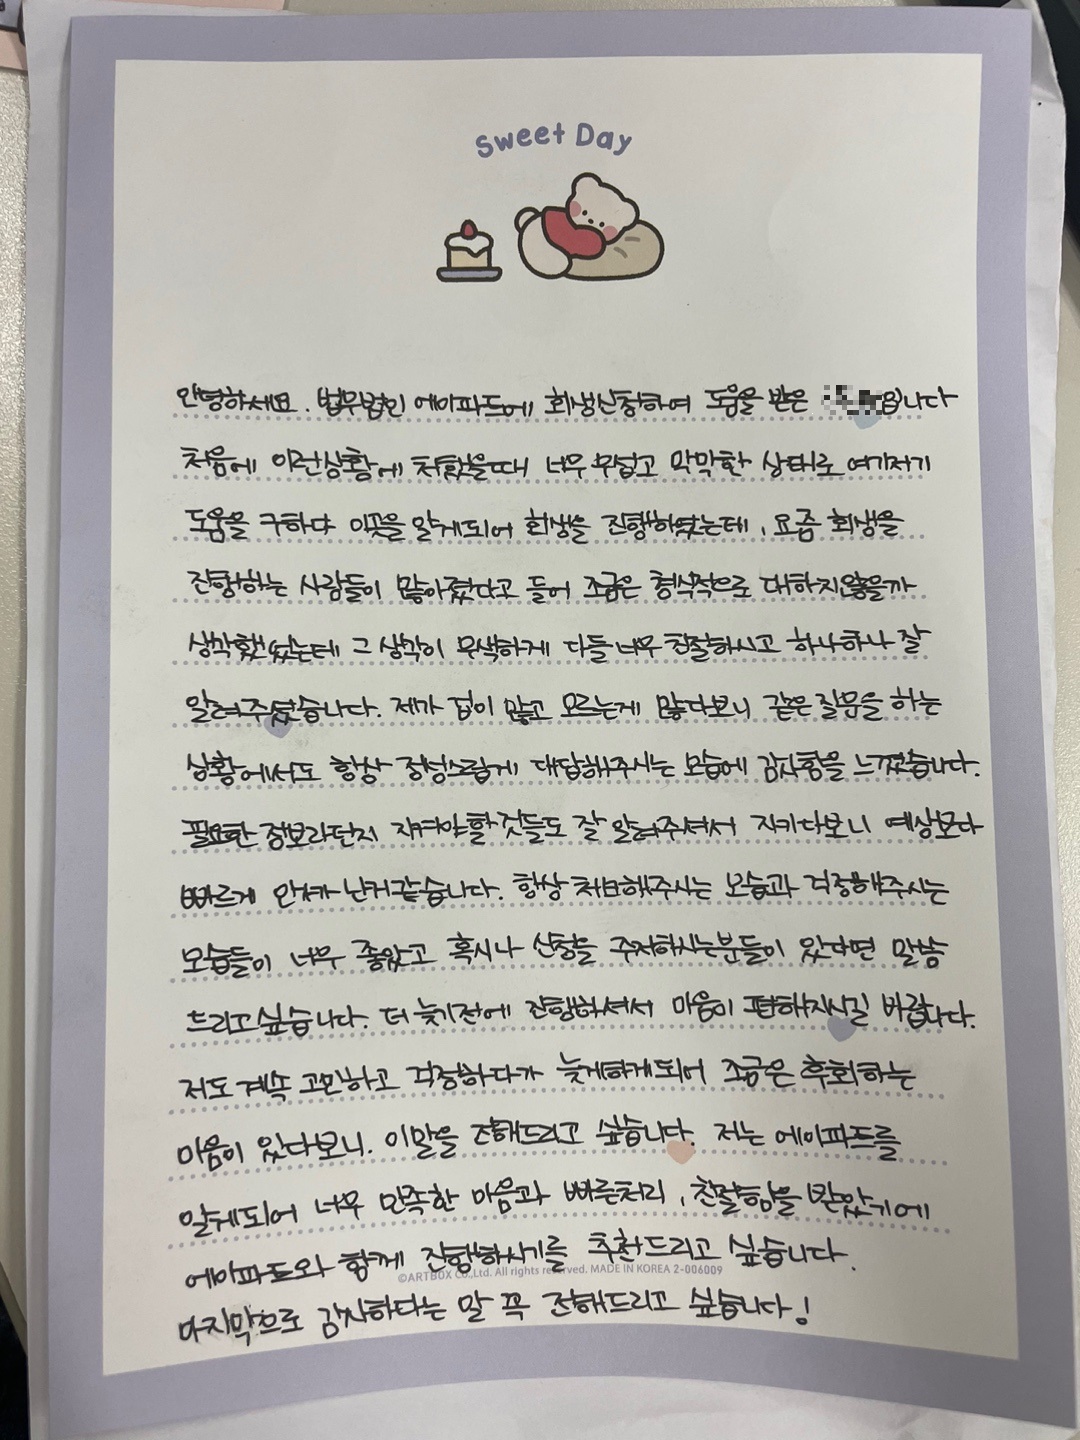 Sweet Day
안녕하세요. 법무법인 에이파트에 회생신청하여 도움을 받은 입니다
처음에 이런상황에 처했을때 너무 무섭고 막막한 상태로 여기저기
도움을 구하다 이곳을 알게되어 회생을 진행하였는데, 요즘 회생을
진행하는 사람들이 많아졌다고 들어 조금은 형식적으로 대하지않을까
생각했었는데 그 생각이 무색하게 다들 너무 친절하시고 하나하나 잘
알려주셨습니다. 제가 겁이 많고 모르는게 많다보니 같은 질문을 하는
상황에서도 항상 정성스럽게 대답해주시는 모습에 감사함을 느꼈습니다.
필요한 정보라던지 지켜야할것들도 잘 알려주셔서 지키다보니 예상보다
빠르게 인가가 난거같습니다. 항상 처브해주시는 모습과 걱정해주시는
모습들이 너무 좋았고 혹시나 신청을 주저하시는분들이 있다면 말씀
드리고싶습니다. 더 늦기전에 진행하셔서 마음이 편해지시길 바랍니다.
저도 계속 고민하고 걱정하다가 늦게하게되어 조금은 후회하는
마음이 있다보니. 이말을 전해드리고 싶습니다. 저는 에이파트를
알게되어 너무 만족한 마음과 빠른처리, 친절함을 받았기에
에이파트와 함께 진행하시기를 추천드리고 싶습니다.
©ARTBOX Co.,Ltd. All rights reserved. MADE IN KOREA 2-006009
마지막으로 감사하다는 말 꼭 전해드리고 싶습니다!